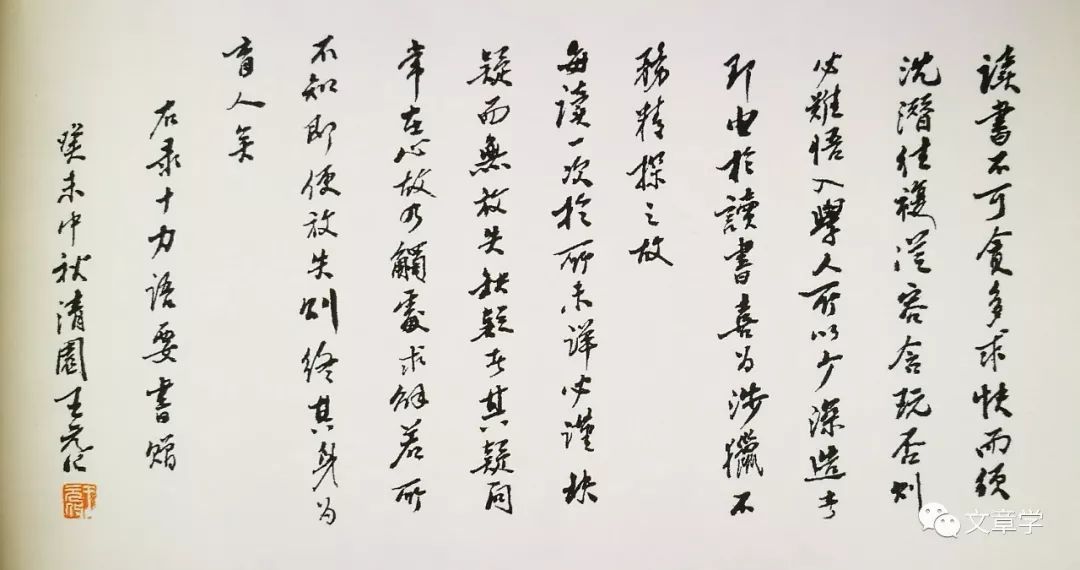 读書不可貪多求快而须
沈潛往複從容含玩否则
必難悟入學人所以少深造者
即由於讀書喜为涉獵不
務精探之故
每读一次於所未詳必謹缺
疑而無放失缺疑者其疑问
常在心故乃觸處求解若所
不知即便放失则终其身为
盲人矣
右录十力语要書赠
癸未中秋清園王元化
文章学